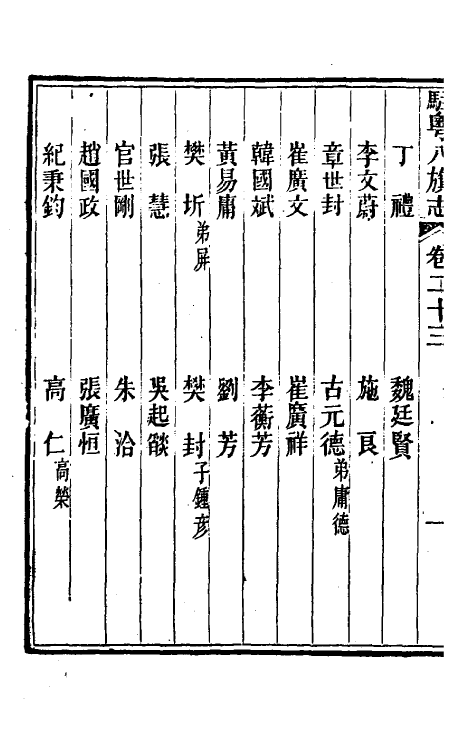 駐粵八旗志 卷二十三 一
丁禮 魏廷賢
李文蔚 施良
章世封 古元德弟庸德
崔廣文 崔廣祥
韓國斌 李蘅芳
黃易庸 劉芳
樊圻弟屏 樊封子鍾彦
張慧 吳起燄
官世剛 朱洽
趙國政 張廣恒
紀秉鈞 高仁高榮